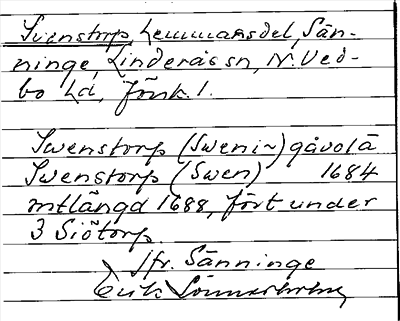 Svenstorp, Lemmansdel, Sän-
ninge, Linderås sn, N. Ved-
bo hd, Jönk. l.
Swenstorp (Sweni~) gåvolä
Swenstorp (Swen) 1684
mtlängd 1688, fört under
3 Siötorp.
Jfr. Sänninge
Erik